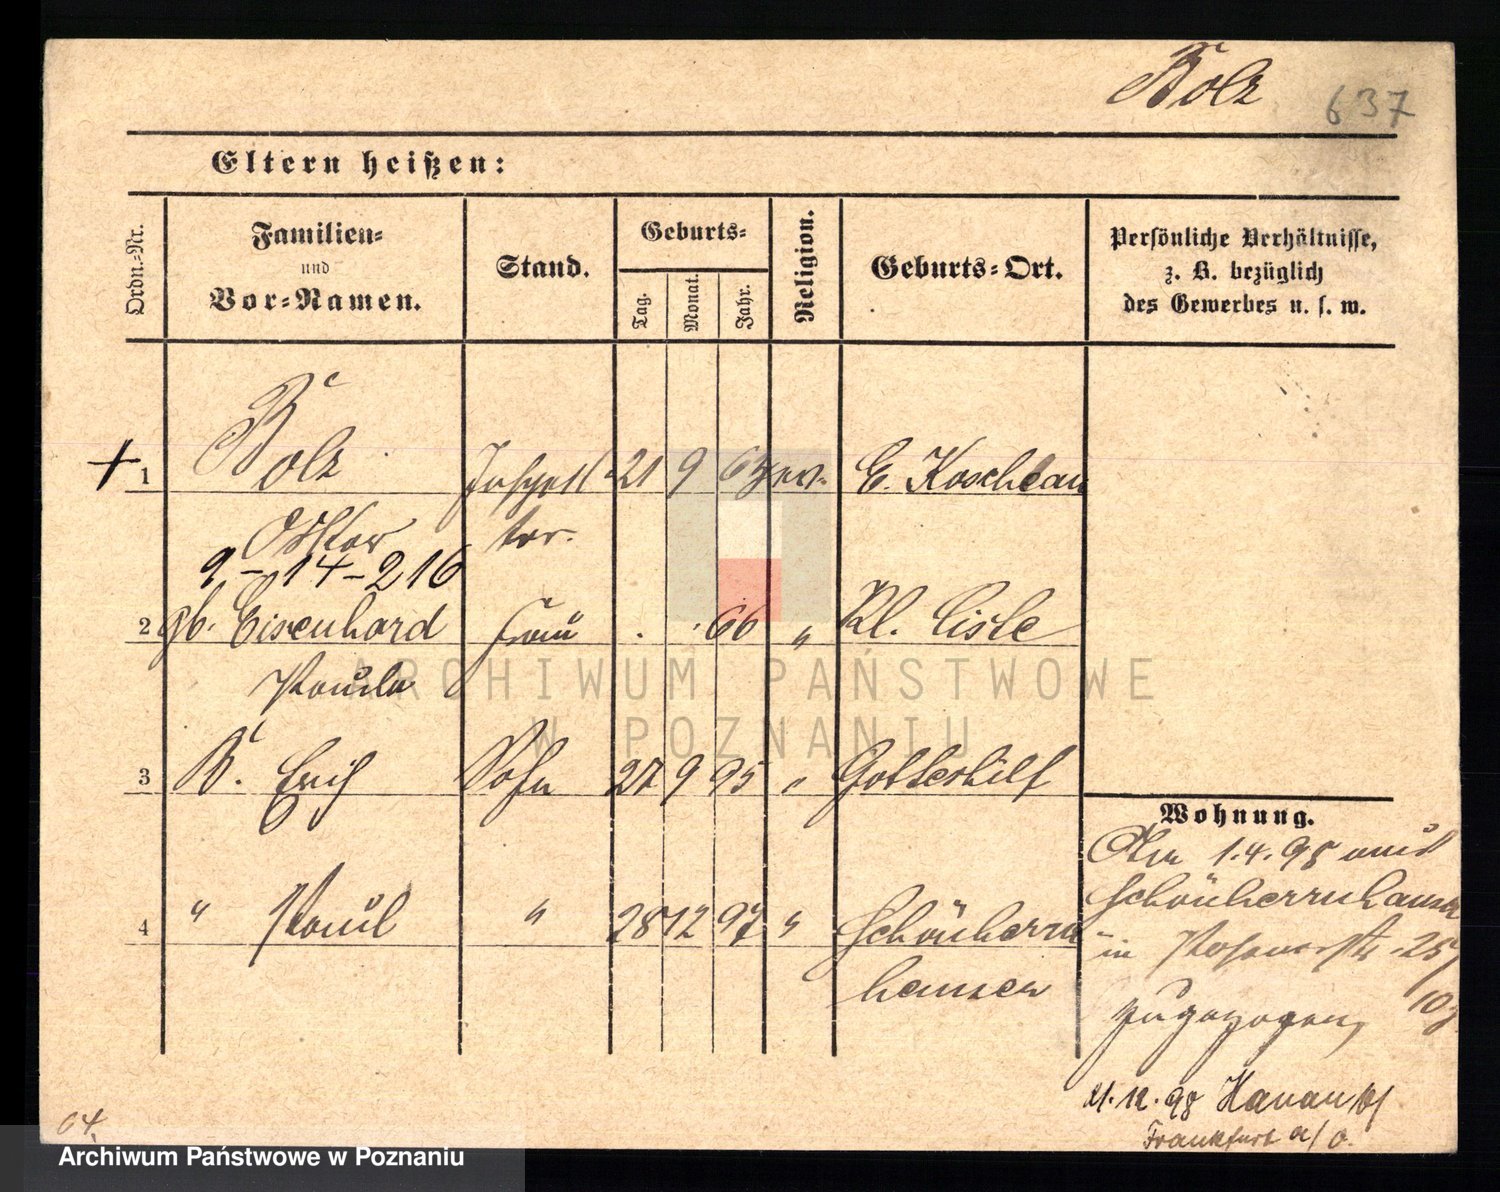 Bolz 637
Eltern heißen:
Ordn.-Nr.
Familien- und Vor-Namen.
Stand.
Geburts-
Tag.
Monat.
Jahr.
Religion.
Geburts-Ort.
Persönliche Verhältnisse, z. B. bezüglich des Gewerbes u. s. w.
1 Bolz Inspek- 21 9 ev. G. Koschlau
Oskar tor.
9-14-216
2 gb. Eisenhard Frau 66 " Kl.
Paula
3 B. Erich Sohn 27 9 95 " Gotteshilf
4 " Paul " 28 12 97 " Schönherrn
hausen
Wohnung.
Am 1.4.98 aus
Schönherrnhausen
in 25/
zugezogen, 10
21.12.98
Frankfurt a/O.
04.
ARCHIWUM PAŃSTWOWE
W POZNANIU
Archiwum Państwowe w Poznaniu